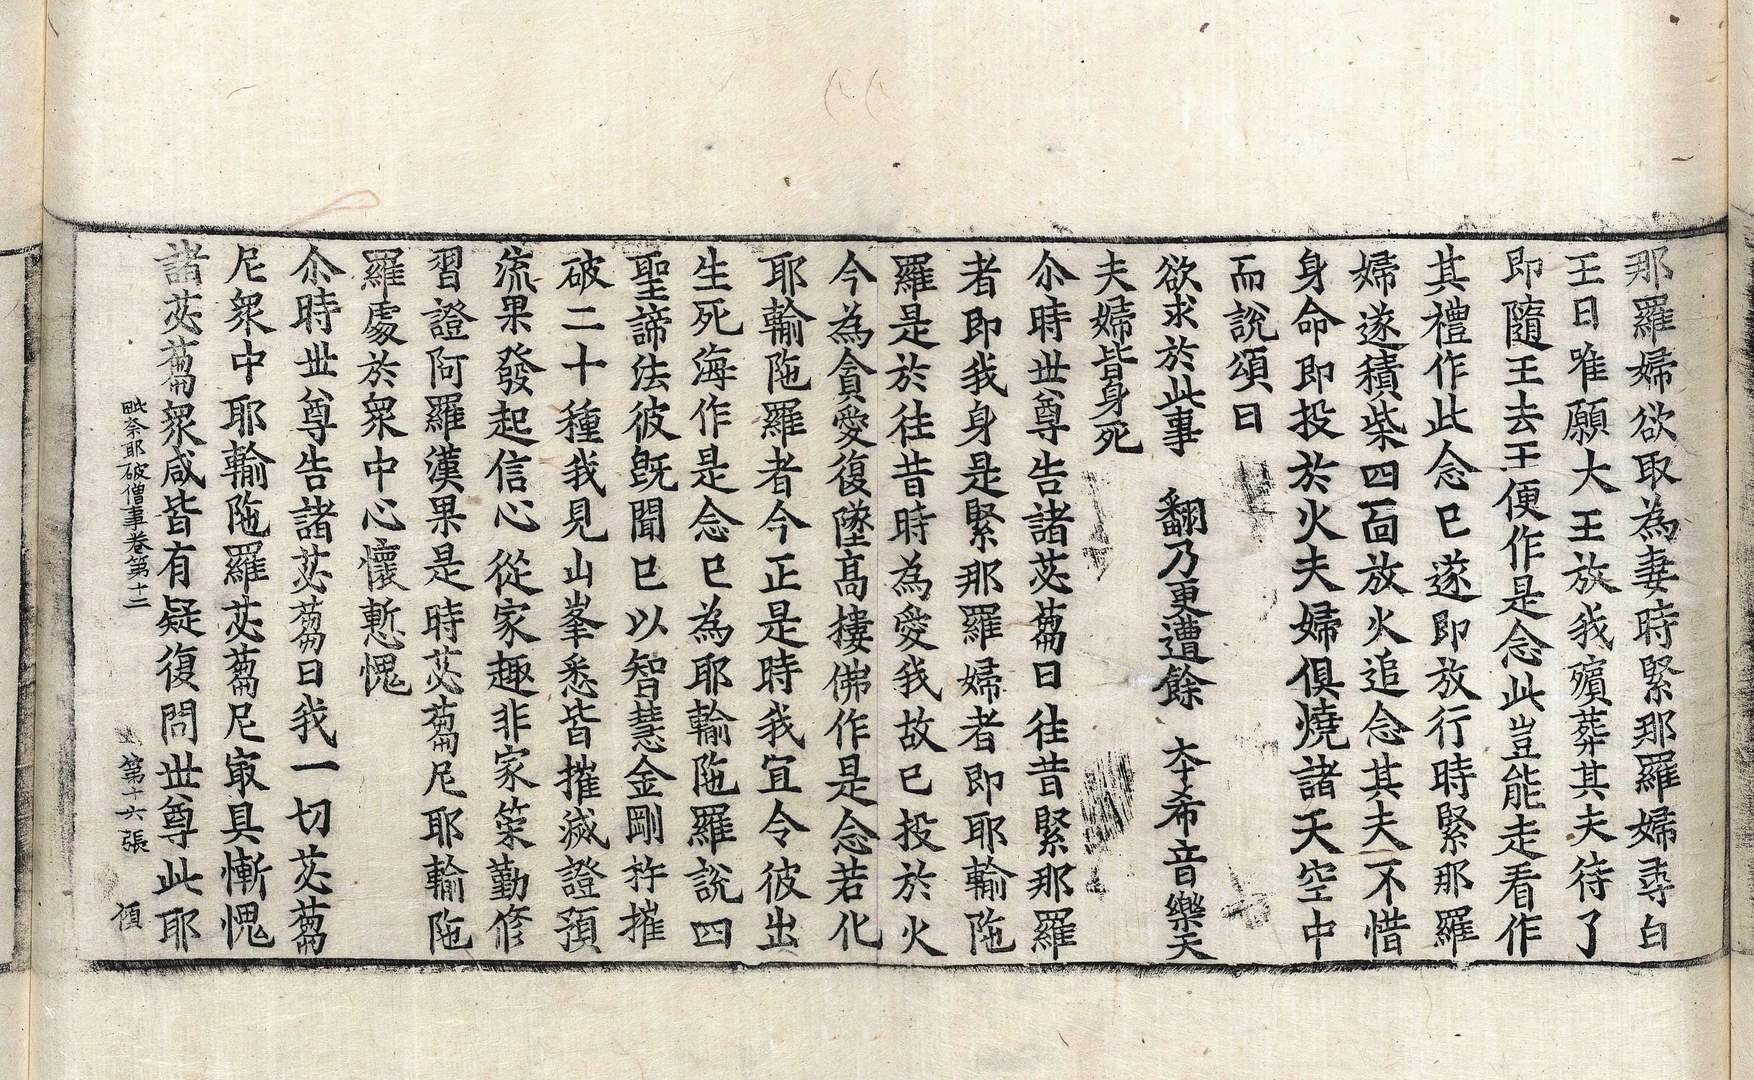 那羅婦欲取為妻時緊那羅婦尋白
王曰唯願大王放我殯葬其夫待了
即隨王去王便作是念此豈能走看作
其禮作此念已遂即放行時緊那羅
婦遂積柴四面放火追念其夫不惜
身命即投於火夫婦俱燒諸天空中
而說頌曰
欲求於此事　翻乃更遭餘　本希音樂天
夫婦皆身死
尒時世尊告諸苾蒭曰往昔緊那羅
者即我身是緊那羅婦者即耶輸陁
羅是於往昔時為愛我故已投於火
今為貪愛復墜高樓佛作是念若化
耶輸陁羅者今正是時我宜令彼出
生死海作是念已為耶輸陁羅說四
聖諦法彼旣聞已以智慧金剛杵摧
破二十種我見山峯悉皆摧滅證預
流果發起信心從家趣非家策勤修
習證阿羅漢果是時苾蒭尼耶輸陁
羅處於衆中心懷慙愧
尒時世尊告諸苾蒭曰我一切苾蒭
尼衆中耶輸陁羅苾蒭尼㝡具慚愧
諸苾蒭衆咸皆有疑復問世尊此耶
毗奈耶破僧事卷第十二　第十六張